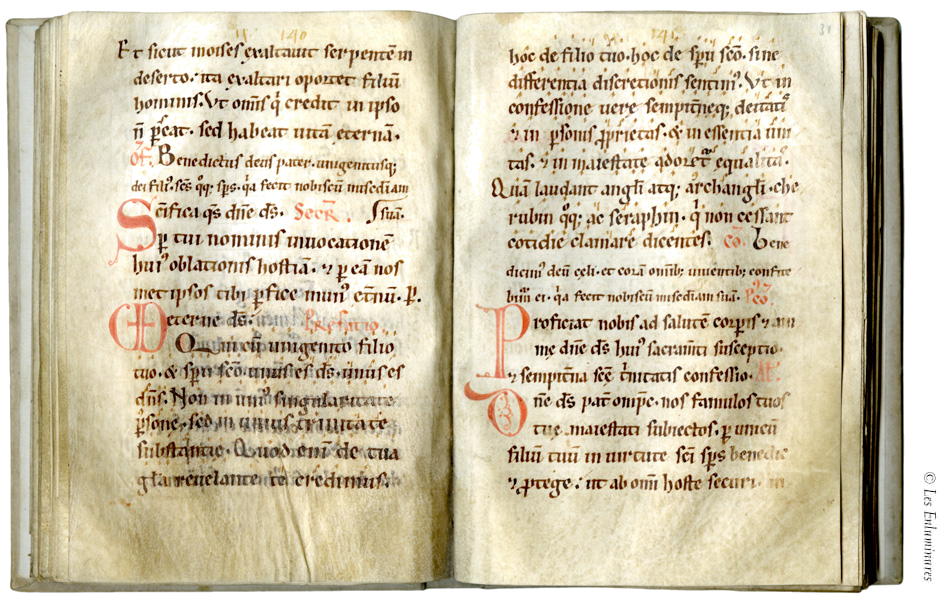 140
Et sicut moises exaltauit serpentē in
deserto· ita exaltari oportet filiū
hominis. Vt omīs q̇ credit in ipso
n̄ ꝑeat· sed habeat uitā eternā·
Of. Benedictus deus pater· unigenitusq;
dei filiꝰ· scs̄ qq; sps̄· q̇a fecit nobiscū misc̄diam
Scīfica qs̄ dn̄e ds̄· Secr̄. suā·
ꝑ tui nominis inuocationē
huiꝰ oblationis hostiā· ⁊ ꝑ eā nos
met ipsos tibi ꝑfice munꝰ etn̄ū· P.
eterne ds̄· Prefatio
Qui cū unigenito filio
tuo· & spū scō· unus es ds̄· unus es
dn̄s· Non in uniꝰ singularitate
ꝑsone· sed in unius trinitate
substantie· Quod enī de tua
gla reuelante te credimus·
141
31
hoc de filio tuo· hoc de spū scō· sine
differentia discretionis sentimꝰ· Vt in
confessione uere sempitn̄eq; deitatis
& in ꝑsonis ꝓprietas· & in essentia uni
tas· ⁊ in maiestate adoret᷑ equalitas·
Quā laudant angl̄i atq; archangl̄i· che
rubin qq; ac seraphin· qi non cessant
cotidie clamare dicentes· co. Bene
dicimꝰ deū celi· et corā omnib; uiuentib; confite
bimur ei· q̇a fecit nobiscū misc̄diam suā· P̄co
Proficiat nobis ad salutē corꝑis ⁊ ani
mę dn̄e ds̄ huiꝰ sacram̄ti susceptio·
⁊ sempitn̄a scē tinitatis confessio· Al̄.
Dn̄e ds̄ pat̄ omp̄e· nos famulos tuos
tue maiestati subiectos· ꝑ unicū
filiū tuū in uirtute scī sps̄ benedic
⁊ ꝓtege· ut ab omī hoste securi in
© Les Enluminures